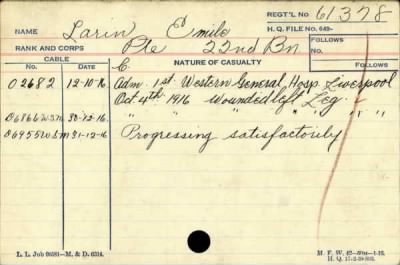 NAME Larin Emile REGT'L No 61378
H. Q. FILE No. 649-
RANK AND CORPS Pte 22nd Bn FOLLOWS
No.
CABLE NATURE OF CASUALTY FOLLOWS
No. DATE C
02682 12-10-16 Adm. 1st Western General Hosp. Liverpool
Oct 4th 1916 Wounded left Leg.
06866W3m 30-12-16 " " " " " "
06955W3m 31-12-16 Progressing satisfactorily
L. L. Job 90581—M. & D. 6334.
M. F. W. 42—
H. Q.